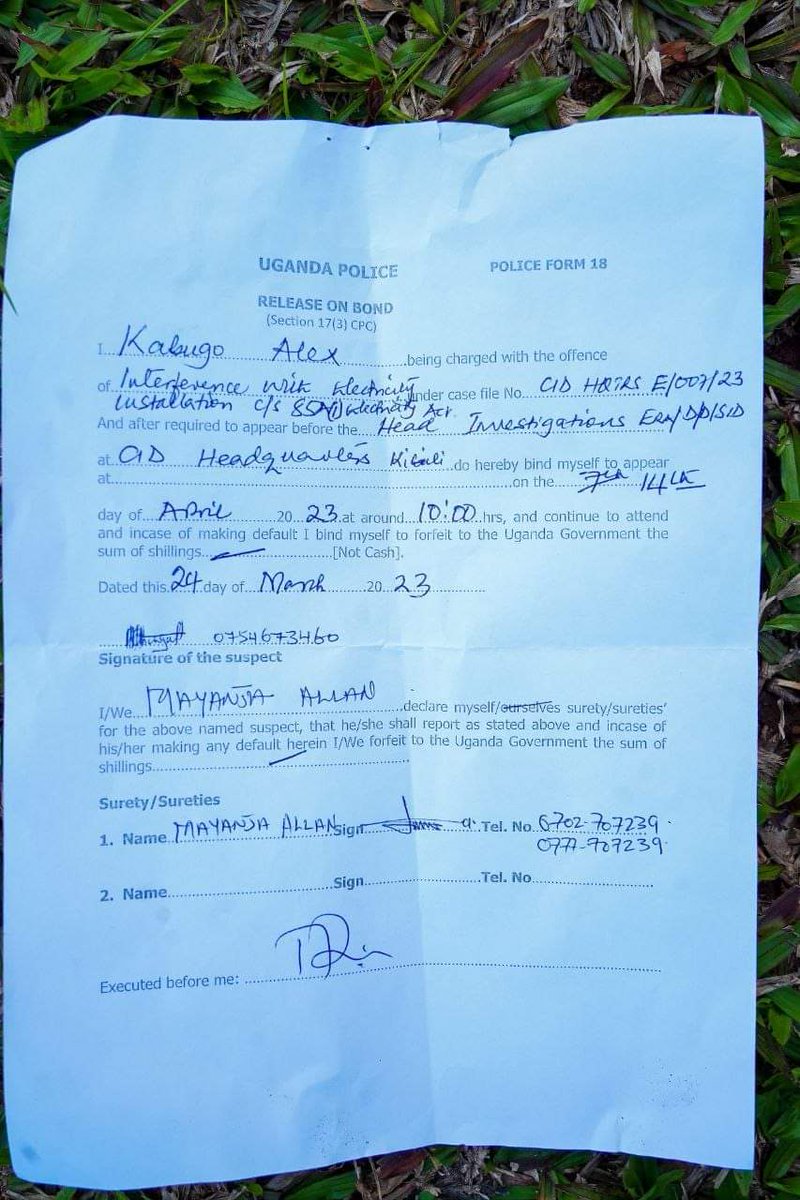 UGANDA POLICE POLICE FORM 18
RELEASE ON BOND
(Section 17(3) CPC)
I Kabugo Alex being charged with the offence
of Interference with Electricity under case file No. CID HQTRS E/007/23
Installation c/s Electricity Act.
And after required to appear before the Head Investigations ERA/D/D/SID
at CID Headquarters Kibuli do hereby bind myself to appear
at on the 7th 14th
day of April 2023 at around 10:00 hrs, and continue to attend
and incase of making default I bind myself to forfeit to the Uganda Government the
sum of shillings [Not Cash].
Dated this 24 day of March 2023
0754673460
Signature of the suspect
I/We MAYANJA ALLAN declare myself/ourselves surety/sureties'
for the above named suspect, that he/she shall report as stated above and incase of
his/her making any default herein I/We forfeit to the Uganda Government the sum of
shillings
Surety/Sureties
1. Name MAYANJA ALLAN Sign Tel. No 0702-707239
0777-707239
2. Name Sign Tel. No
Executed before me: